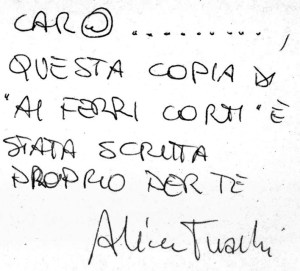 CARO ..........,
QUESTA COPIA DI
"AI FERRI CORTI" È
STATA SCRITTA
PROPRIO PER TE